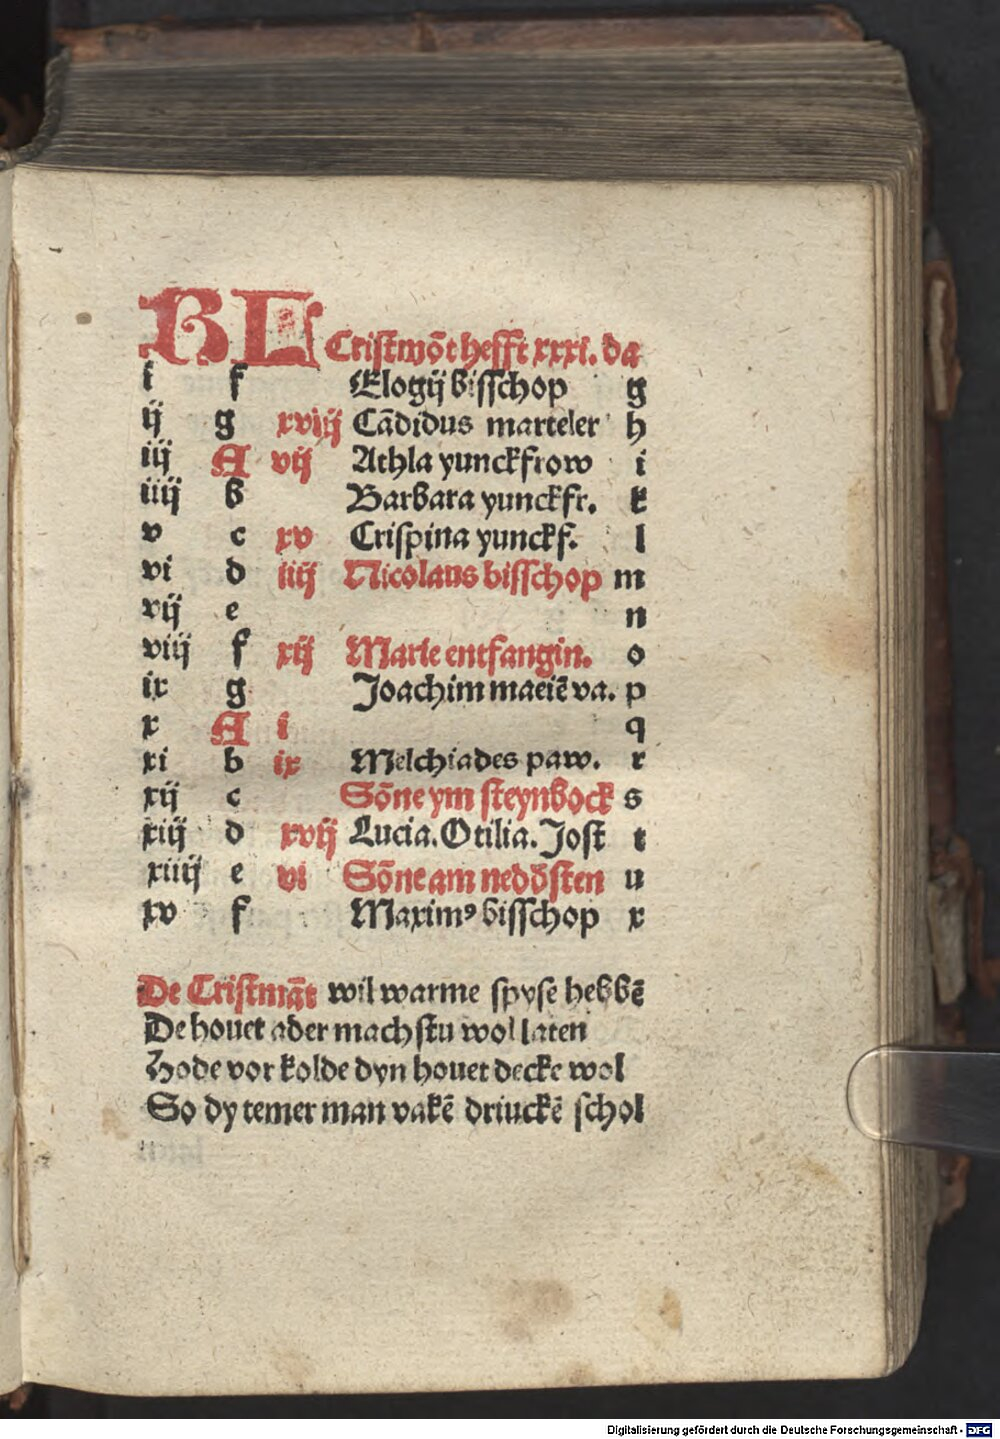 KL Cristmōt hefft xxxi. da
i f Elogij bisschop g
ij g xviij Cādidus marteler h
iij A vij Athla yunckfrow i
iiij b Barbara yunckfr. k
v c xv Crispina yunckf. l
vi d iiij Nicolaus bisschop m
vij e n
viij f xij Marie entfangin. o
ix g Joachim maeiē va. p
x A i q
xi b ix Melchiades paw. r
xij c Sōne ym steynbock s
xiij d xvij Lucia. Otilia. Jost t
xiiij e vi Sōne am neddšten u
xv f Maximꝰ bisschop x
De Cristmāt wil warme spyse hebbē
De houet ader machstu wol laten
Hode vor kolde dyn houet decke wol
So dy temer man vakē driuckē schol
Digitalisierung gefördert durch die Deutsche Forschungsgemeinschaft - DFG